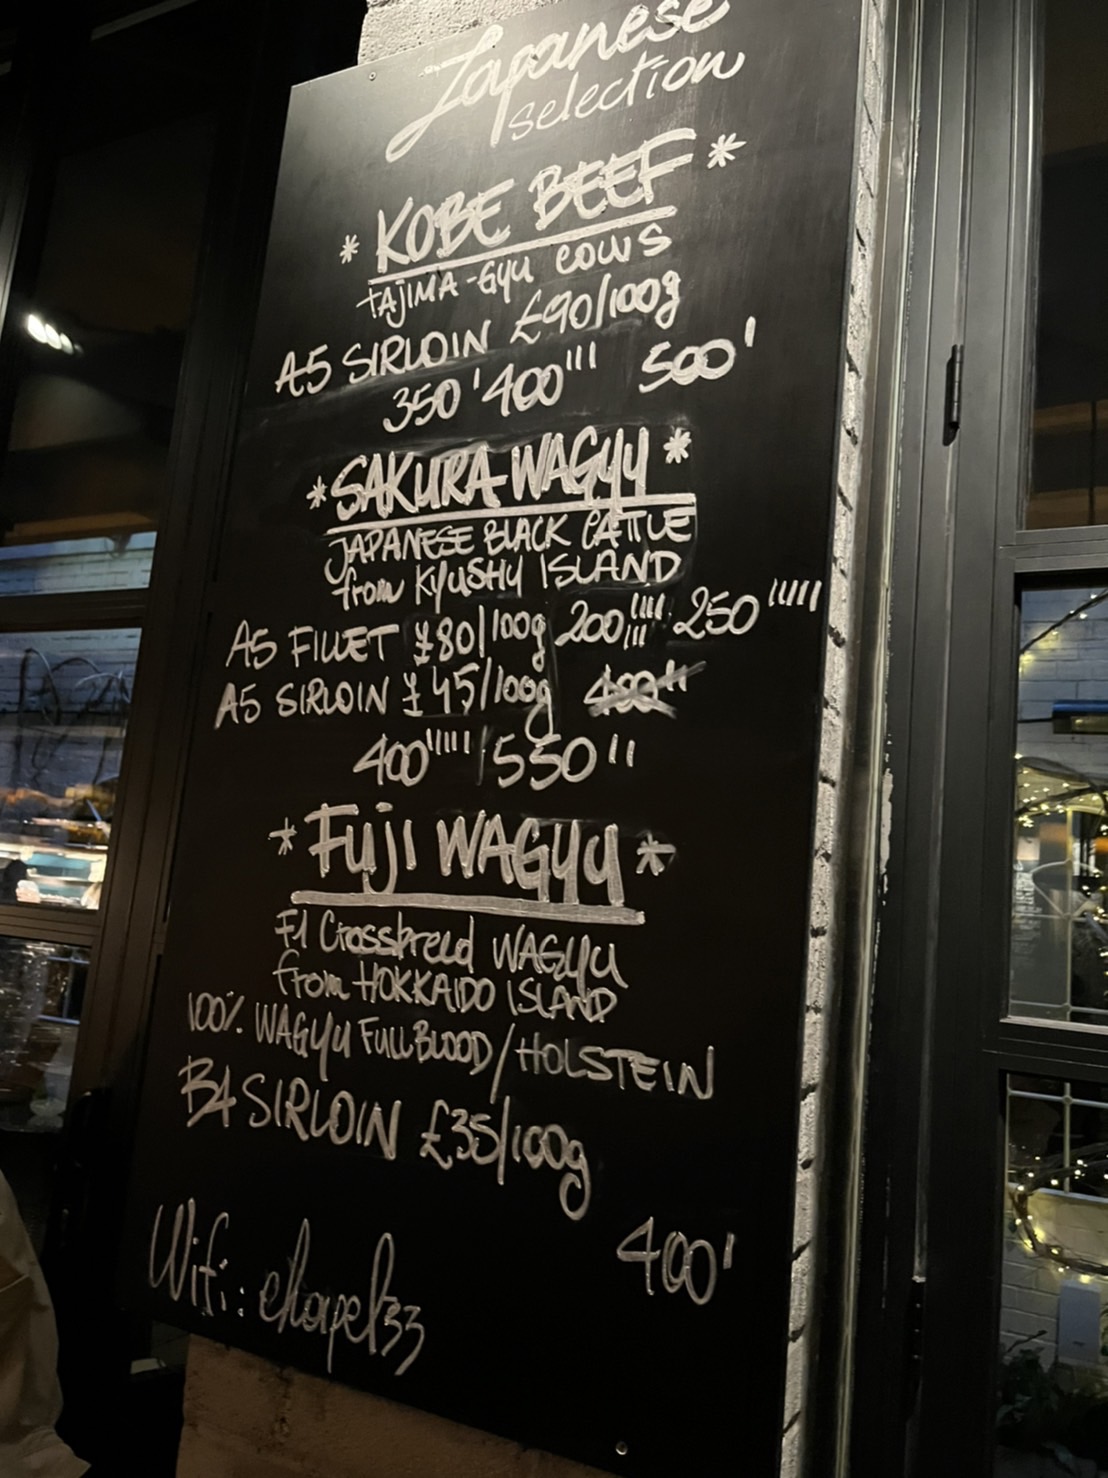 Japanese
selection
* KOBE BEEF *
TAJIMA-GYU COWS
A5 SIRLOIN £90/100g
350 ' 400 ''' 500 '
* SAKURA WAGYU *
JAPANESE BLACK CATTLE
from KYUSHU ISLAND
A5 FILLET £80/100g 200 ''''''' 250 ''''''
A5 SIRLOIN £45/100g 400 ''
400 ''''' 550 ''
* Fuji WAGYU *
F1 Crossbreed WAGYU
from HOKKAIDO ISLAND
100% WAGYU FULLBLOOD/HOLSTEIN
B4 SIRLOIN £35/100g
400 '
Wifi: chapel33